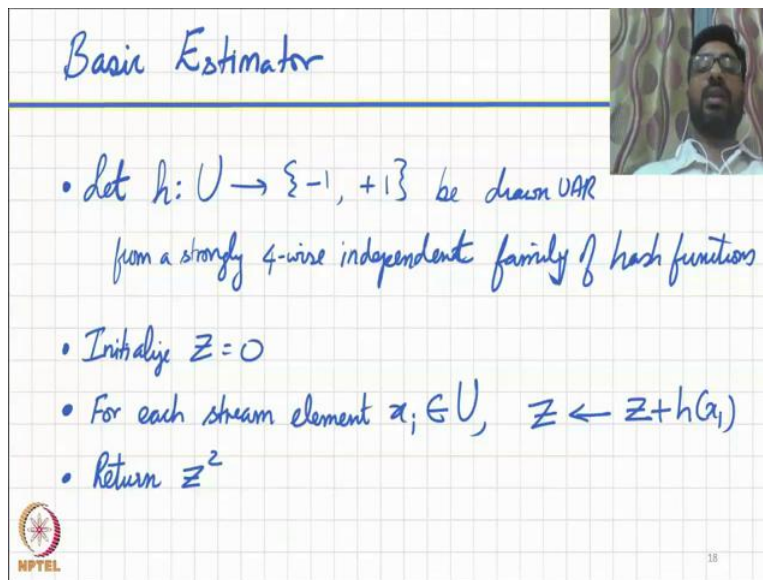 Basic Estimator
• Let h: U → {-1, +1} be drawn UAR
from a strongly 4-wise independent family of hash functions
• Initialize Z = 0
• For each stream element xᵢ ∈ U, Z ← Z + h(x₁)
• Return Z²
NPTEL
18